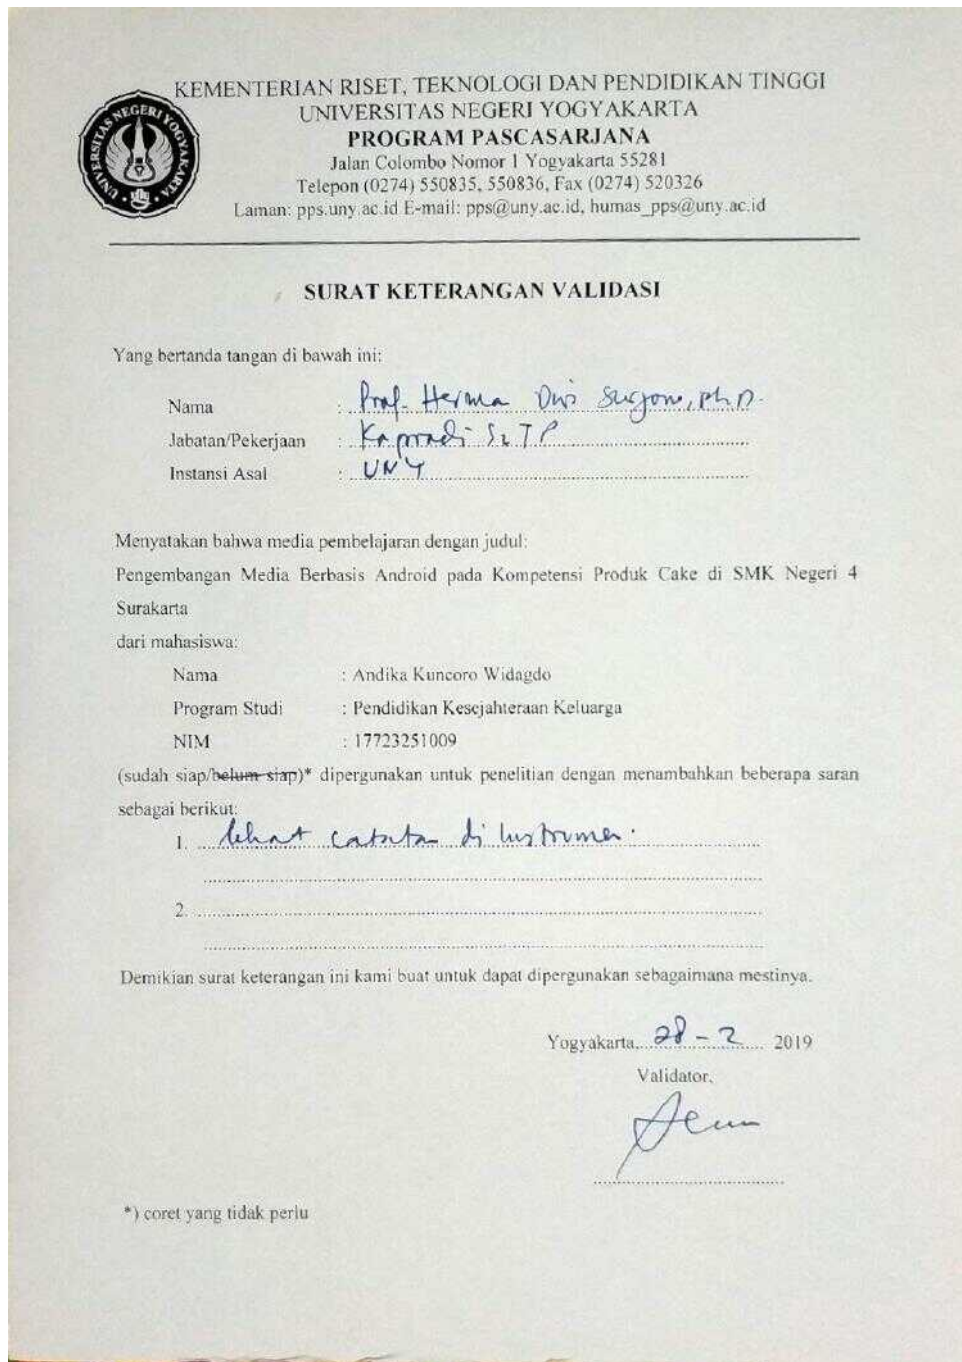 KEMENTERIAN RISET, TEKNOLOGI DAN PENDIDIKAN TINGGI
UNIVERSITAS NEGERI YOGYAKARTA
PROGRAM PASCASARJANA
Jalan Colombo Nomor 1 Yogyakarta 55281
Telepon (0274) 550835, 550836, Fax (0274) 520326
Laman: pps.uny.ac.id E-mail: pps@uny.ac.id, humas_pps@uny.ac.id
UNIVERSITAS NEGERI YOGYAKARTA
SURAT KETERANGAN VALIDASI
Yang bertanda tangan di bawah ini:
Nama : Prof. Herman Dwi Surjono, Ph.D.
Jabatan/Pekerjaan : Kaprodi S2 TP
Instansi Asal : UNY
Menyatakan bahwa media pembelajaran dengan judul:
Pengembangan Media Berbasis Android pada Kompetensi Produk Cake di SMK Negeri 4
Surakarta
dari mahasiswa:
Nama : Andika Kuncoro Widagdo
Program Studi : Pendidikan Kesejahteraan Keluarga
NIM : 17723251009
(sudah siap/belum siap)* dipergunakan untuk penelitian dengan menambahkan beberapa saran
sebagai berikut:
1. lihat catatan di instrumen.
2.
Demikian surat keterangan ini kami buat untuk dapat dipergunakan sebagaimana mestinya.
Yogyakarta, 28 - 2 2019
Validator,
*) coret yang tidak perlu